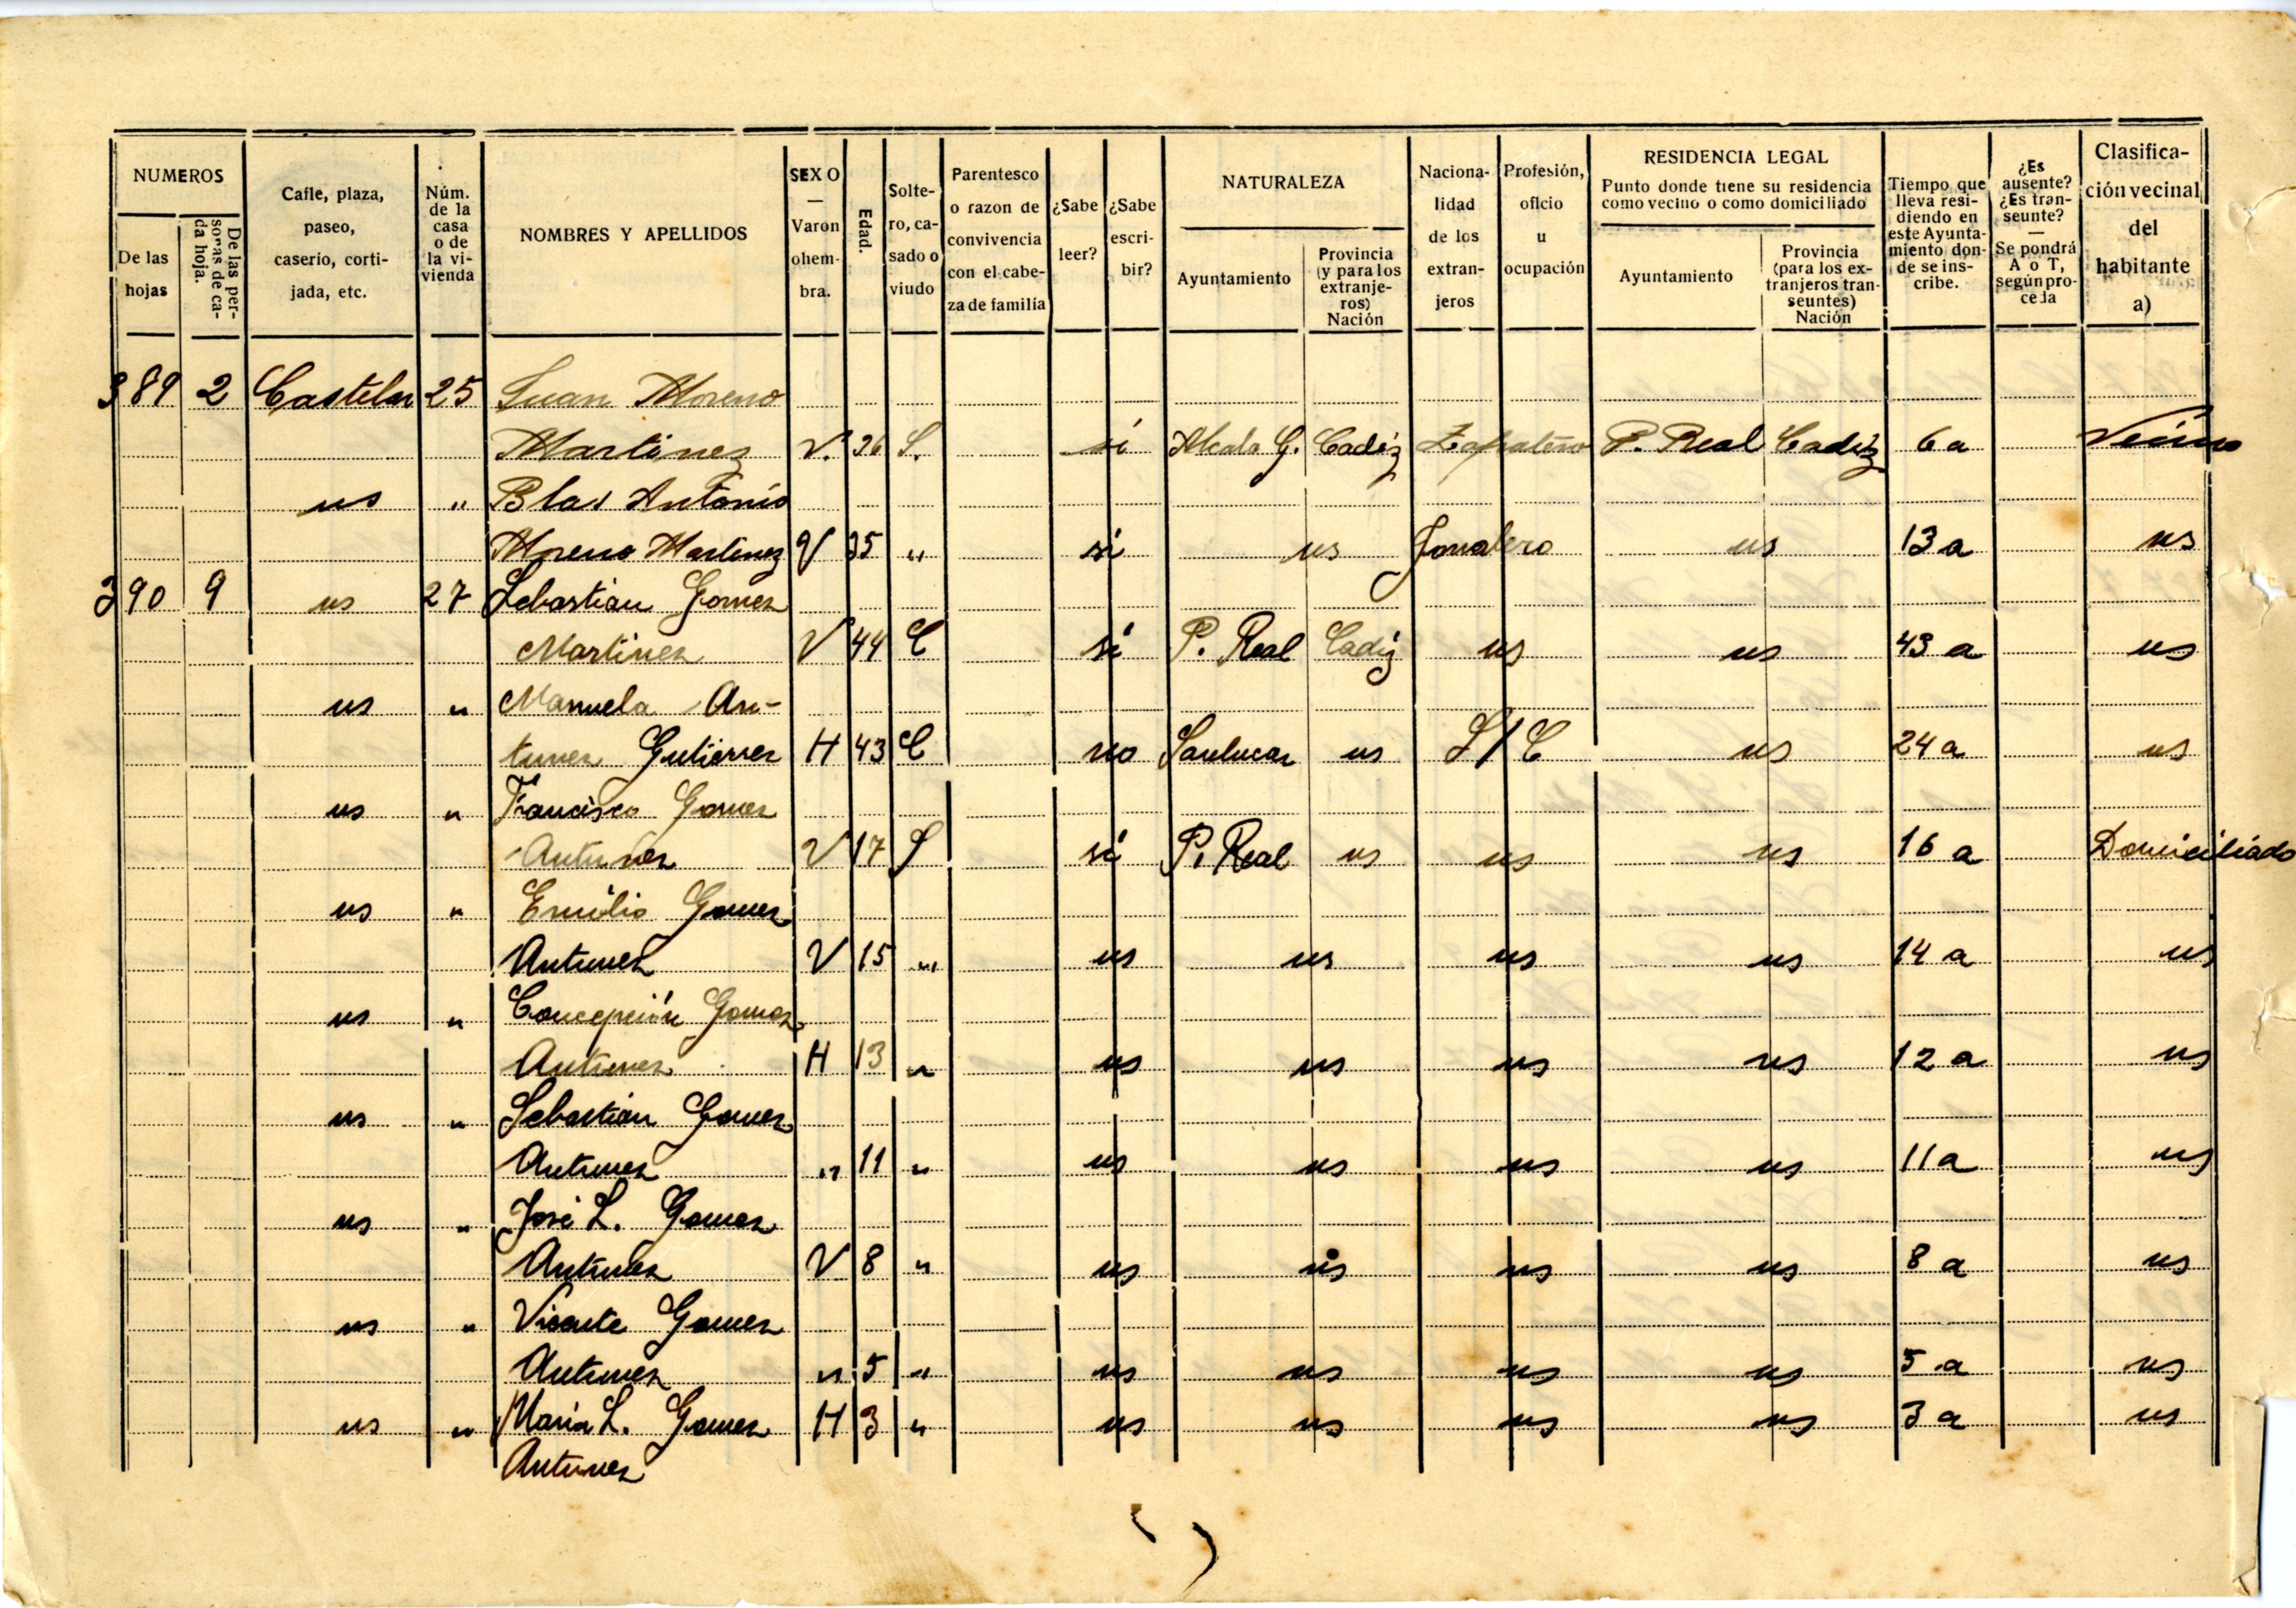 NUMEROS
De las hojas
De las personas de cada hoja.
Calle, plaza, paseo, caserío, cortijada, etc.
Núm. de la casa o de la vivienda
NOMBRES Y APELLIDOS
SEXO — Varon ohembra.
Edad.
Soltero, casado o viudo
Parentesco o razon de convivencia con el cabeza de familia
¿Sabe leer?
¿Sabe escribir?
NATURALEZA
Ayuntamiento
Provincia (y para los extranjeros) Nación
Nacionalidad de los extranjeros
Profesión, oficio u ocupación
RESIDENCIA LEGAL
Punto donde tiene su residencia como vecino o como domiciliado
Ayuntamiento
Provincia (para los extranjeros transeuntes) Nación
Tiempo que lleva residiendo en este Ayuntamiento donde se inscribe.
¿Es ausente? ¿Es transeunte? — Se pondrá A o T, según proceda
Clasificación vecinal del habitante a)
389 2 Castelar 25 Juan Moreno
Martinez V. 36 S. si Alcala G. Cadiz Zapatero P. Real Cadiz 6 a Vecino
us " Blas Antonio
Moreno Martinez V 35 " si us Jornalero us 13 a us
390 9 us 27 Sebastian Gomez
Martinez V 44 C si P. Real Cadiz us us 43 a us
us " Manuela An-
tunez Gutierrez H 43 C no Sanlucar us S/C us 24 a us
us " Francisco Gomez
Antunez V 17 S si P. Real us us us 16 a Domiciliado
us " Emilio Gomez
Antunez V 15 " us us us us 14 a us
us " Concepción Gomez
Antunez H 13 " us us us us 12 a us
us " Sebastian Gomez
Antunez " 11 " us us us us 11 a us
us " José L. Gomez
Antunez V 8 " us us us us 8 a us
us " Vicente Gomez
Antunez " 5 " us us us us 5 a us
us " Maria L. Gomez H 3 " us us us us 3 a us
Antunez